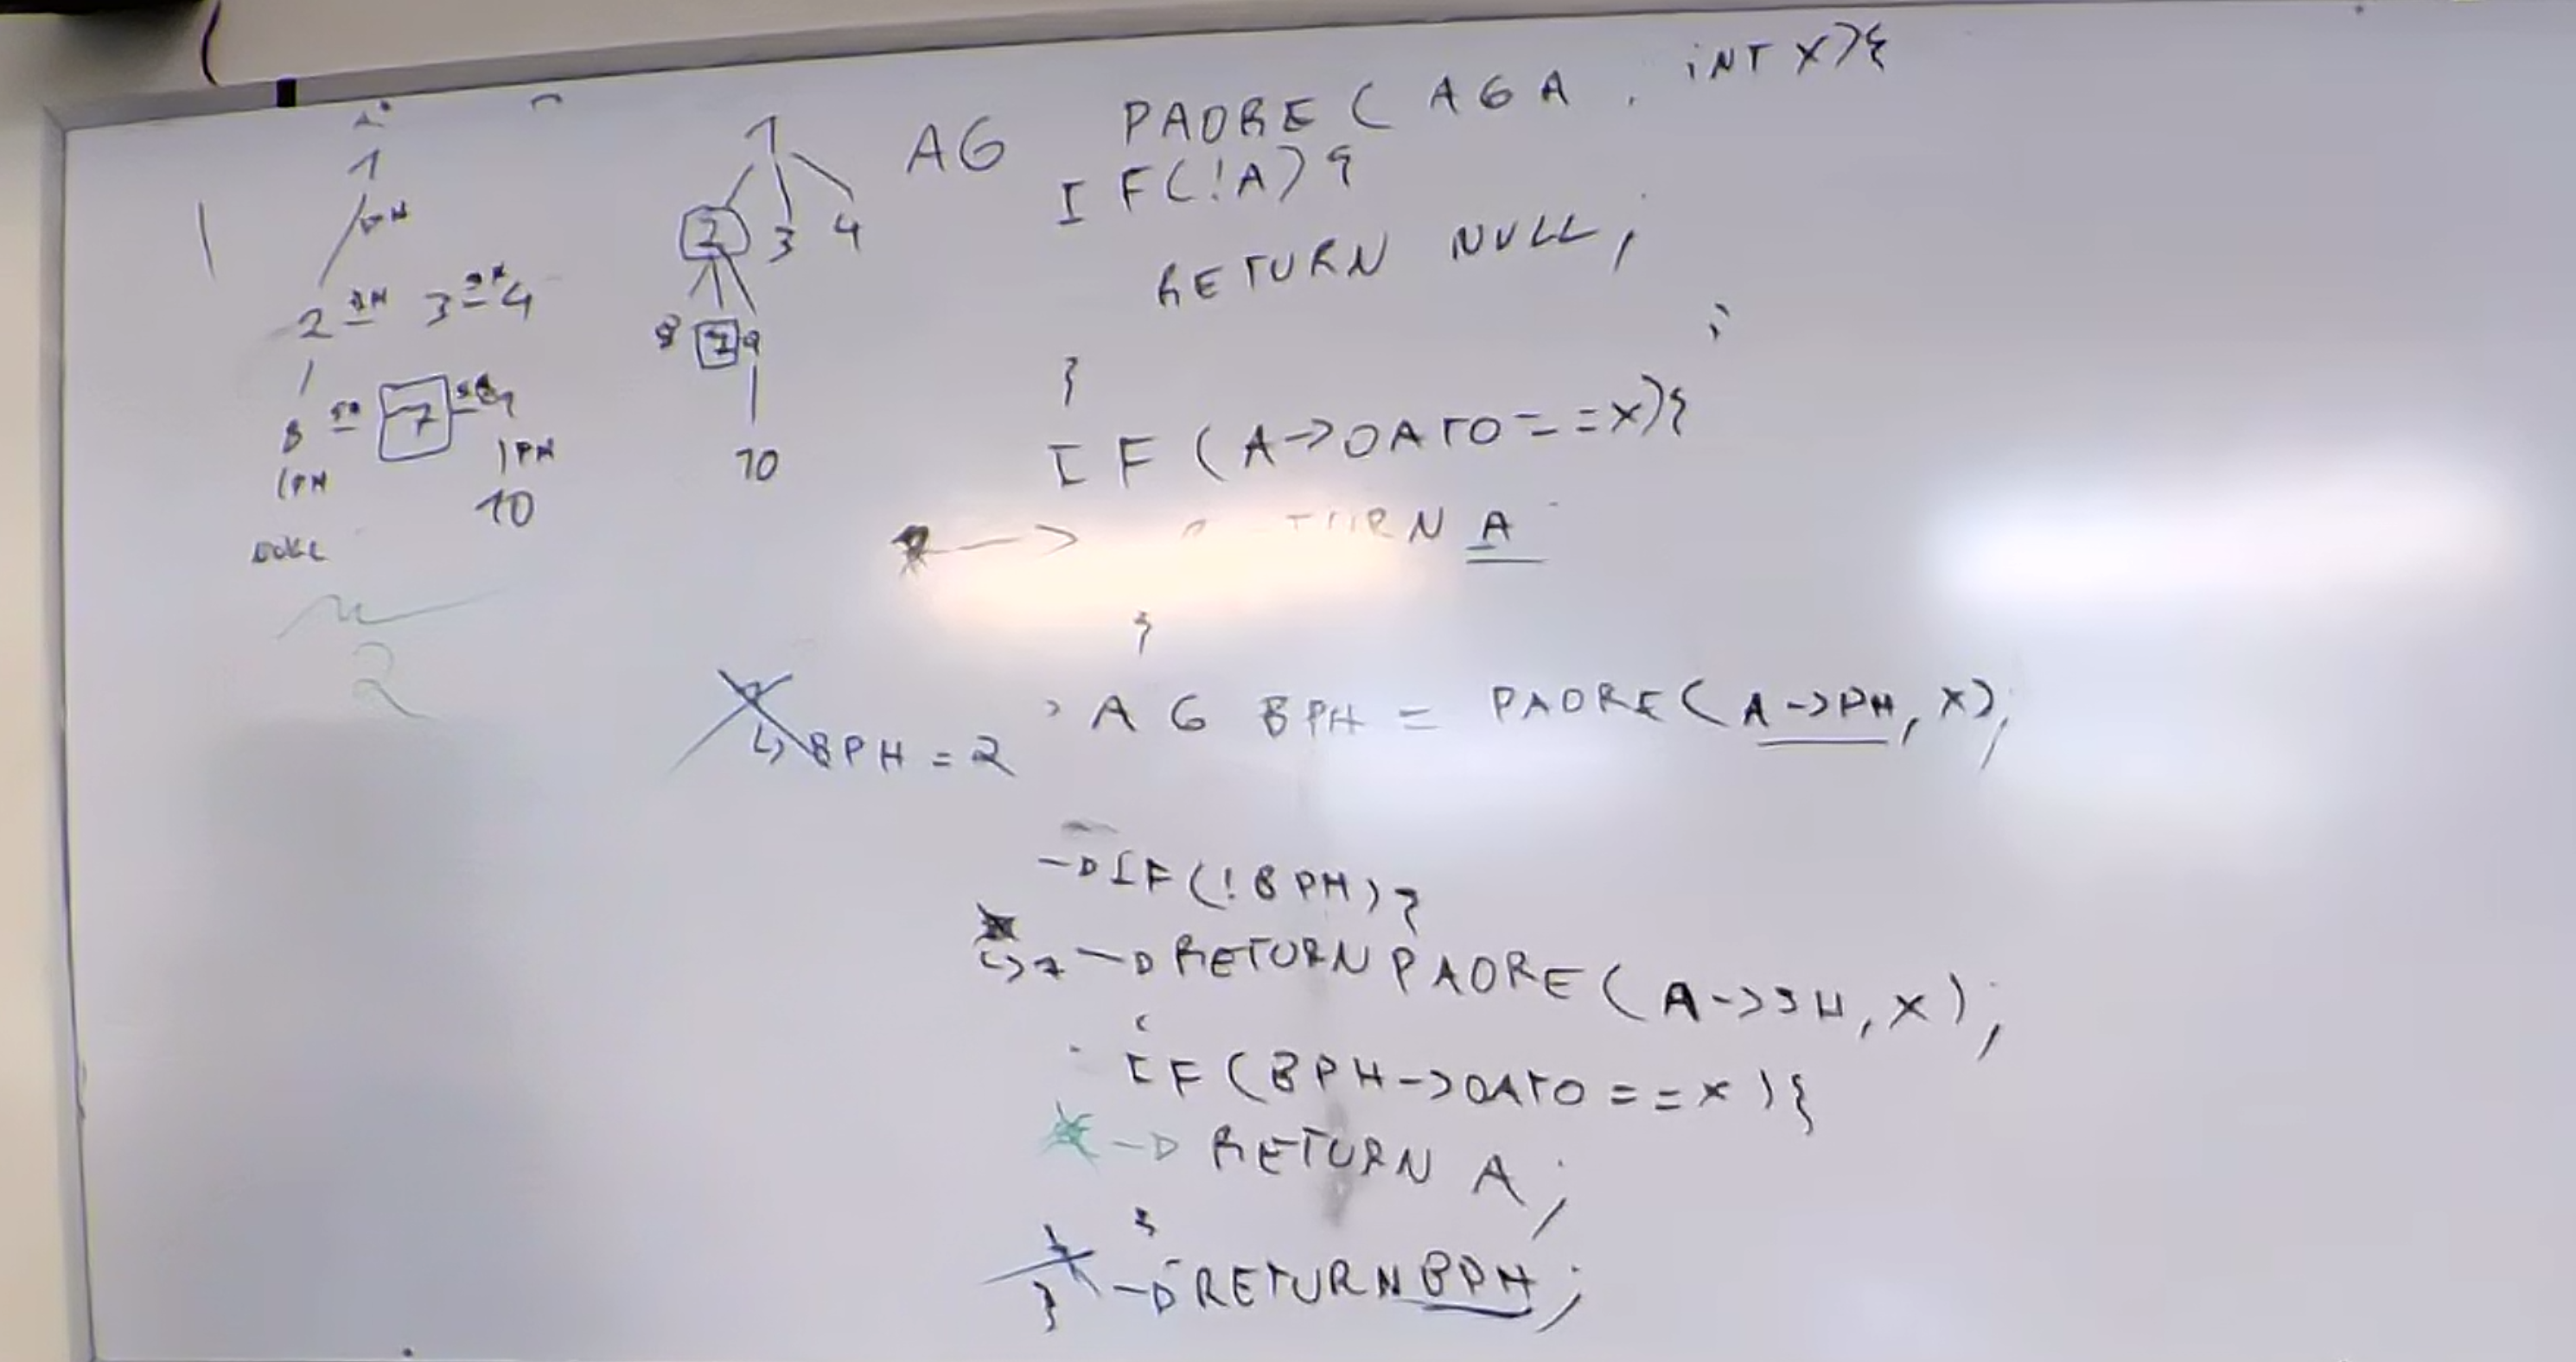 1
2 3 4
8 7 9
10
1
2 3 4
8 7 9
10
AG PADRE ( AG A , INT X){
IF(!A){
RETURN NULL;
}
IF (A->DATO==X){
RETURN A
}
AG BPH = PADRE(A->PH, X);
↳ BPH = 2
IF(!BPH){
↳ 7 RETURN PADRE(A->SH, X);
IF(BPH->DATO==X){
RETURN A;
}
RETURN BPH;
}
2